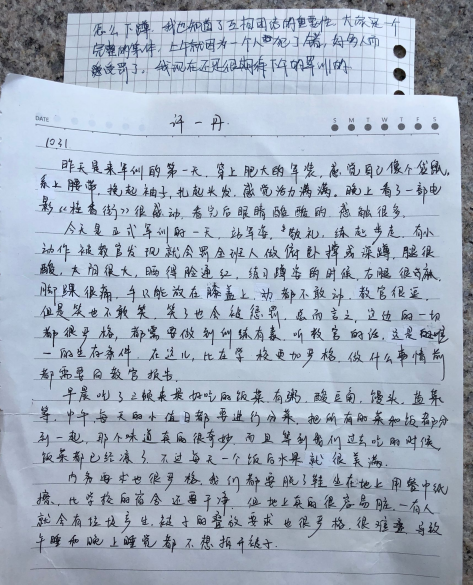 怎么下蹲。我也知道了互相团结的重要性，大家是一个
完整的集体，上午就因为一个人犯了错，好多人而
受罚了。我现在还是很期待下午的军训的。
DATE
许一丹
S M T W T F S
1031
昨天是来军训的第一天，穿上肥大的军装，感觉自己像个袋鼠，
系上腰带，挽起袖子，扎起头发，感觉活力满满。晚上看了一部电
影《 》很感动，看完后眼睛酸酸的，感触很多。
今天是正式军训的一天，站军姿，敬礼，练起步走，有小
动作被教官发现就会罚全班人做俯卧撑或深蹲，腿很
酸，太阳很大，晒得脸通红，练习蹲姿的时候，右腿很
脚踝很痛，手只能放在膝盖上，动都不敢动，教官很逗，
但是笑也不能笑，笑了也会被惩罚。总而言之，这边的一切
都很严格，都需要做到训练有素，听教官的话，这是唯
一的生存条件。在这儿，比在学校更加严格，做什么事情前
都需要向教官报告。
早晨吃了三顿来最好吃的饭菜有粥，酸豆角，馒头，蔬菜
等，中午每天的小值日都要进行分菜，把所有的菜和饭都分
到一起，那个味道真的很奇妙，而且等到我们过去吃的时候，
饭菜都已经凉了，不过每天一个饭后水果就很美满。
内务要求也很严格，我们都要脱了鞋坐在地上用餐巾纸
擦，比学校的宿舍还要干净，但地上真的很容易脏，一有人
就会有垃圾产生，被子的叠放要求也很严格，很难叠，导致
午睡和晚上睡觉都不想拆开被子。